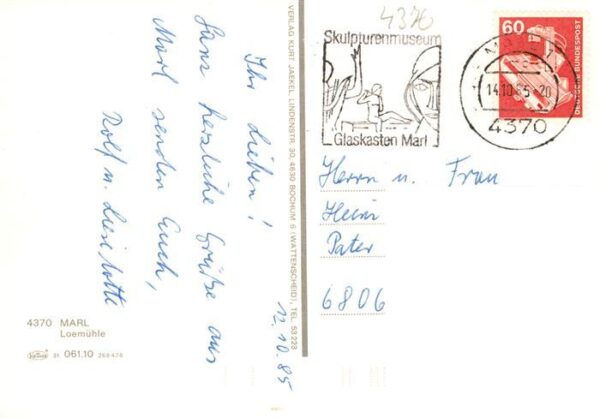 Ihr Lieben!
Ganz herzliche Grüße aus
Marl senden Euch,
Rolf u. Lieselotte
12.10.85
4370 MARL
Loemühle
31 061.10 268474
VERLAG KURT JAEKEL, LINDENSTR. 30, 4630 BOCHUM 6 (WATTENSCHEID), TEL. 53223
4370
Skulpturenmuseum
Glaskasten Marl
14.10.85-20
4370
60
DEUTSCHE BUNDESPOST
Herrn u. Frau
Heini
Pater
6806